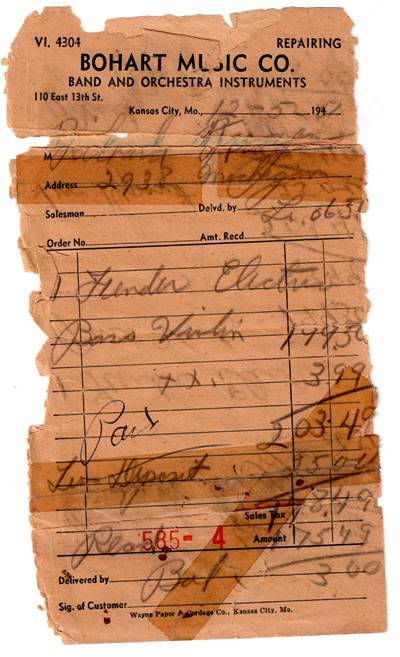 VI. 4304 REPAIRING
BOHART MUSIC CO.
BAND AND ORCHESTRA INSTRUMENTS
110 East 13th St.
Kansas City, Mo., 12-5- 194
M Richard
Address 2933 Michigan
Salesman Delvd. by Li. 0631
Order No. Amt. Recd.
1 Fender Electric
Bass Violin 199.50
1 3.99
Paid 203.49
Less Deposit
Sales Tax 178.49
585- 4 Amount 175.49
Delivered by Bal. 3.00
Sig. of Customer
Wayne Paper & Cordage Co., Kansas City, Mo.